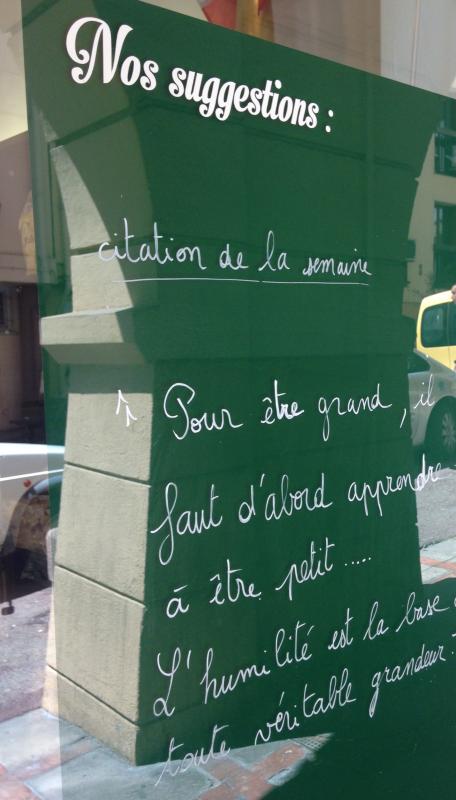 Nos suggestions :
citation de la semaine
Pour être grand, il
faut d'abord apprendre
à être petit .....
L'humilité est la base
toute véritable grandeur.